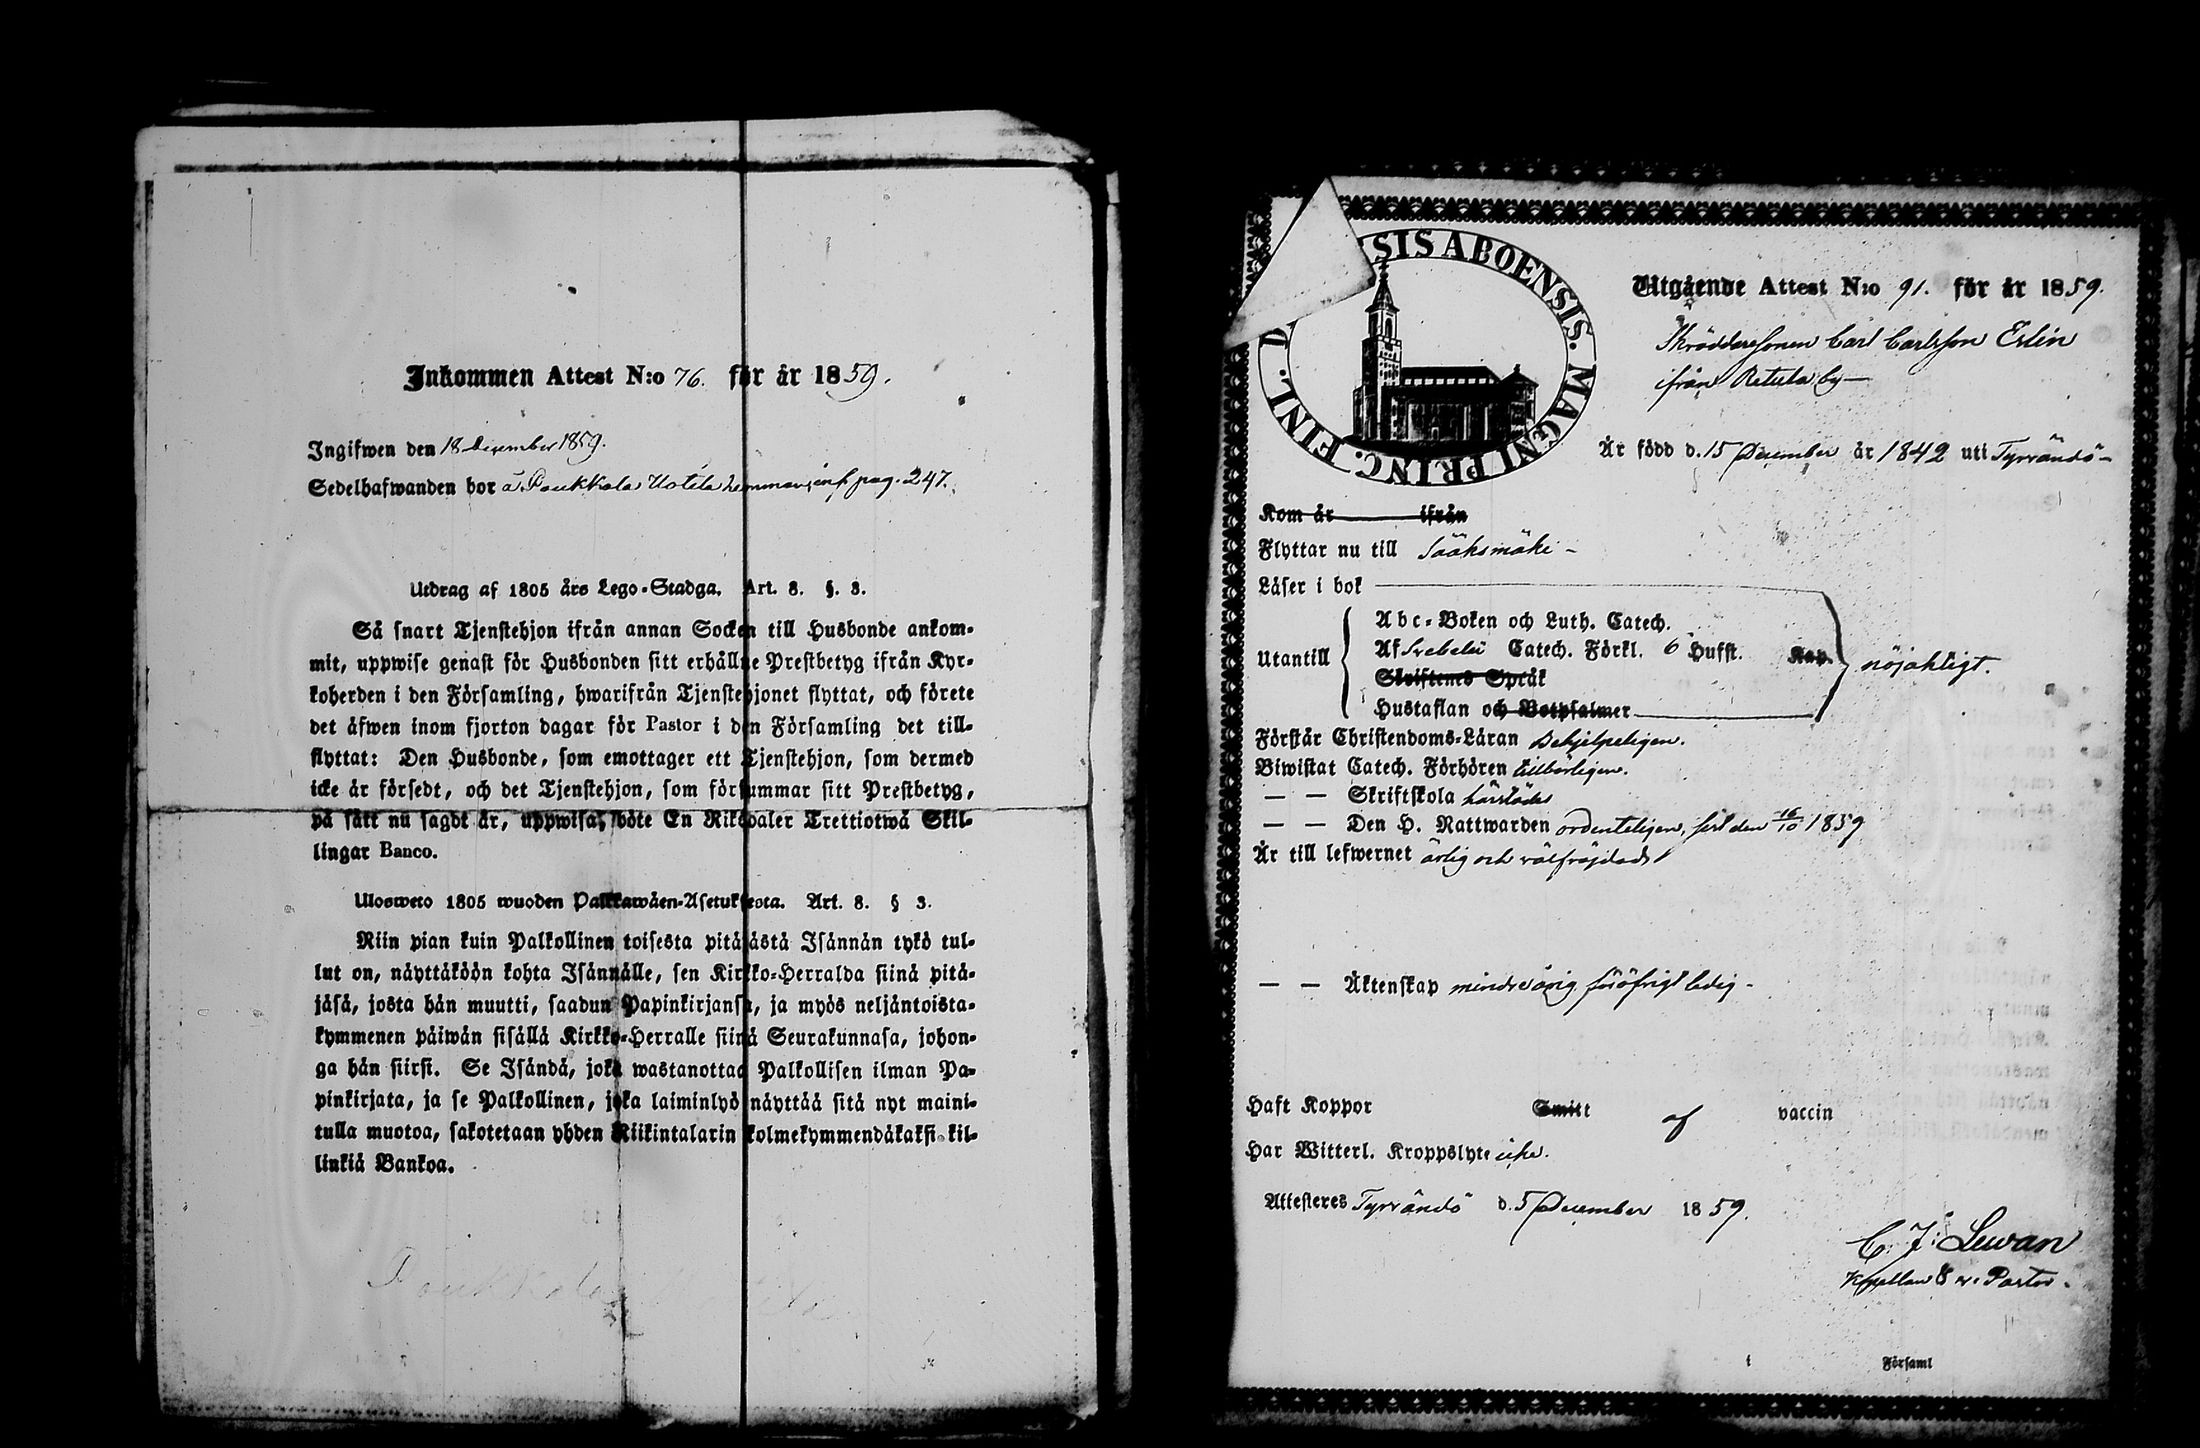 Inkommen Attest N:o 76. för år 1859.
Ingifwen den 18 december 1859.
Sedelhafwanden bor å Poukkola Uotila hemman, inf. pag. 247.
Utdrag af 1805 års Lego-Stadga. Art. 8. §. 3.
Så snart Tjenstehjon ifrån annan Socken till Husbonde ankom-
mit, uppwise genast för Husbonden sitt erhållne Prestbetyg ifrån Kyr-
koherden i den Församling, hwarifrån Tjenstehjonet flyttat, och förete
det äfwen inom fjorton dagar för Pastor i den Församling det till-
flyttat: Den Husbonde, som emottager ett Tjenstehjon, som dermed
icke är försedt, och det Tjenstehjon, som försummar sitt Prestbetyg,
på sätt nu sagdt är, uppwisa, böte En Riksdaler Trettiotwå Skil-
lingar Banco.
Ulosweto 1805 wuoden Palkkawäen-Asetuksesta. Art. 8. § 3.
Niin pian kuin Palkollinen toisesta pitäjästä Isännän tykö tul-
lut on, näyttäköön kohta Isännälle, sen Kirkko-Herralda siinä pitä-
jäsä, josta hän muutti, saadun Papinkirjansa, ja myös neljäntoista-
kymmenen päiwän sisällä Kirkko-Herralle siinä Seurakunnasa, johon-
ga hän siirsi. Se Isändä, joka wastanottaa Palkollisen ilman Pa-
pinkirjata, ja se Palkollinen, joka laiminlyö näyttää sitä nyt maini-
tulla muotoa, sakotetaan yhden Riikintalarin kolmekymmendäkaksi kil-
linkiä Bankoa.
Poukkola Uotila
SIS ABOENSIS. MAGNI PRINC. FINL. D
Utgående Attest N:o 91. för år 1859.
Skräddaresonen Carl Carlsson Eslin
ifrån Retula by
Är född d. 15 December år 1842 uti Tyrvändö
Kom år ifrån
Flyttar nu till Sääksmäki
Läser i bok
Utantill
Abc-Boken och Luth. Catech.
Af Svebelii Catech. Förkl. 6 Hufst. Kap.
Skriftenes Språk
Hustaflan och Botpsalmer
nöjaktigt.
Förstår Christendoms-Läran Behjelpeligen.
Biwistat Catech. Förhören tillbörligen.
— — Skriftskola härstädes
— — Den H. Nattwarden ordenteligen, sist den 16/10 1859
Är till lefwernet ärlig och välfrejdad
— — Äktenskap minderårig föröfrigt ledig
Haft Koppor Smitt af vaccin
Har Witterl. Kroppslyte icke.
Attesteres Tyrvändö d. 5 December 1859.
C. J. Lewan
Kapellan & v. Pastor.
i Församl